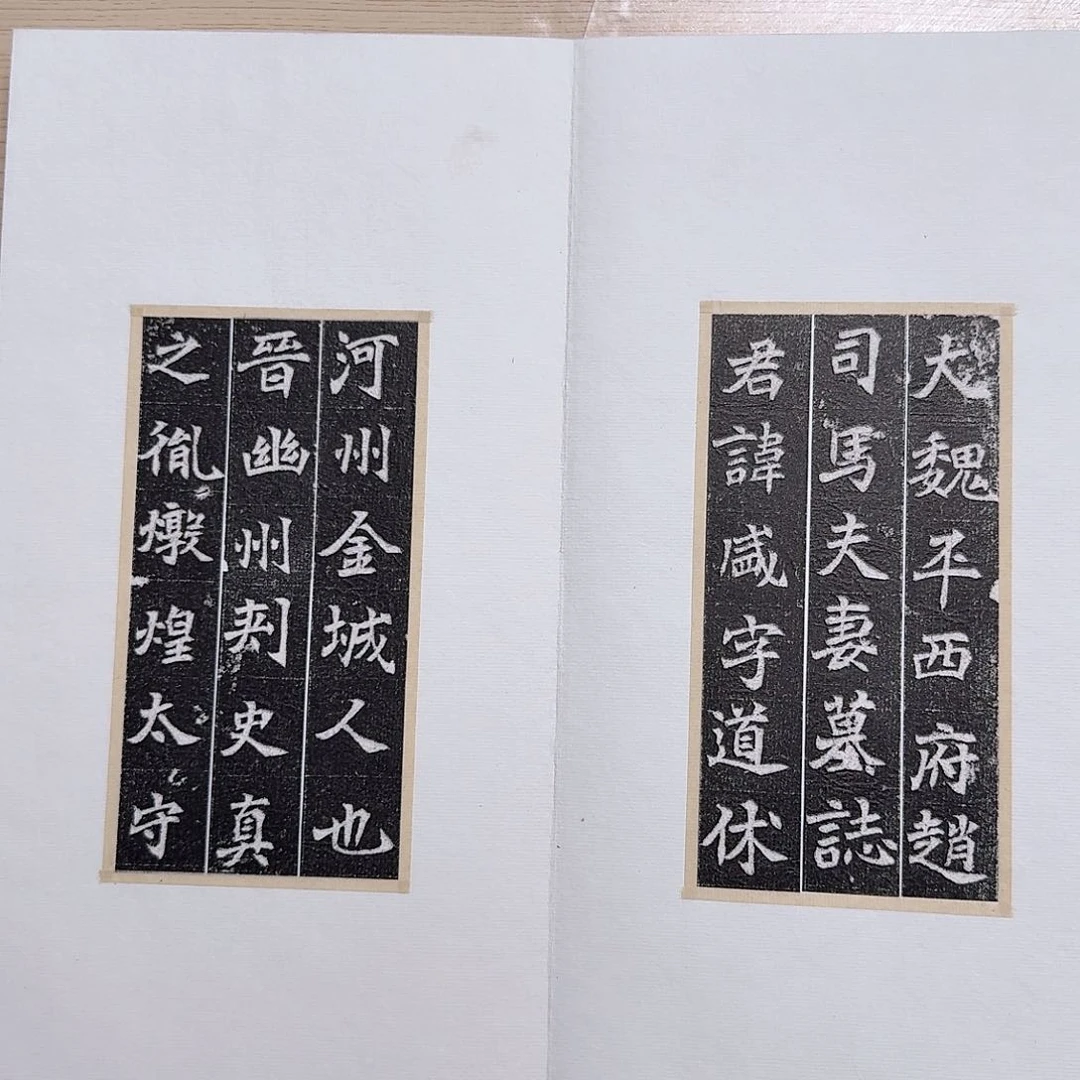 大魏平西府趙
司馬夫妻墓誌
君諱盛字道休
河州金城人也
晉幽州刺史真
之胤燉煌太守